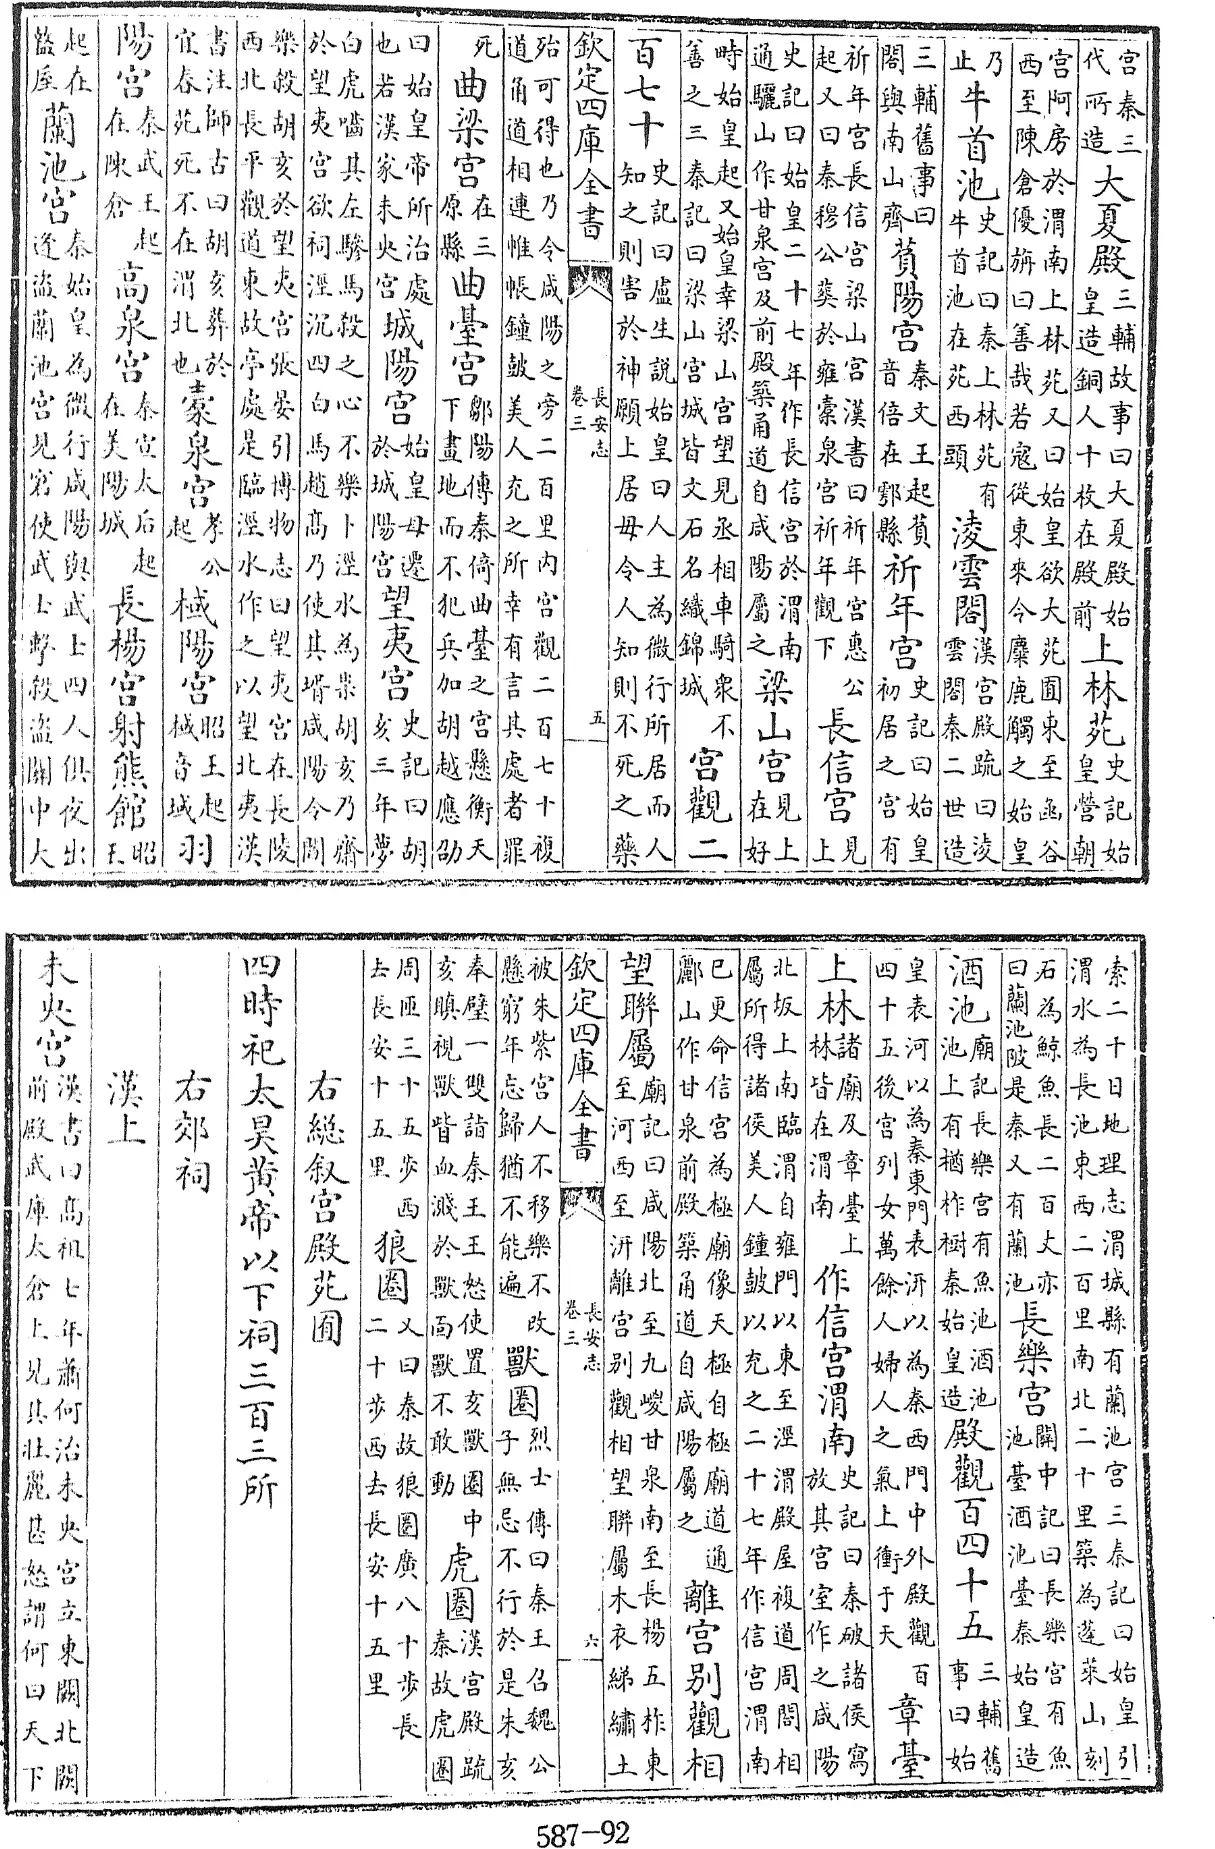 宫秦三代所造大夏殿三輔故事曰大夏殿始皇造銅人十枚在殿前上林苑史記始皇營朝
宫阿房於渭南上林苑又曰始皇欲大苑囿東至函谷西至陳倉優旃曰善哉若寇從東來令麋鹿觸之始皇
乃止牛首池史記曰秦上林苑有牛首池在苑西頭淩雲閣漢宫殿疏曰淩雲閣秦二世造
三輔舊事曰閣與南山齊萯陽宫秦文王起萯音倍在鄠縣祈年宫史記曰始皇初居之宫有
祈年宫長信宫梁山宫漢書曰祈年宫惠公起又曰秦穆公葬於雍橐泉宫祈年觀下長信宫見上
史記曰始皇二十七年作長信宫於渭南通驪山作甘泉宫及前殿築甬道自咸陽屬之梁山宫見上在好
時始皇起又始皇幸梁山宫望見丞相車騎衆不善之三秦記曰梁山宫城皆文石名織錦城宫觀二
百七十史記曰盧生説始皇曰人主為微行所居而人知之則害於神願上居毋令人知則不死之藥
欽定四庫全書 長安志卷三 五
殆可得也乃令咸陽之旁二百里内宫觀二百七十複道甬道相連帷帳鐘鼓美人充之所幸有言其處者罪
死曲梁宫在三原縣曲臺宫鄒陽傳秦倚曲臺之宫懸衡天下畫地而不犯兵加胡越應劭
曰始皇帝所治處也若漢家未央宫城陽宫始皇母遷於城陽宫望夷宫史記曰胡亥三年夢
白虎嚙其左驂馬殺之心不樂卜涇水為祟胡亥乃齋於望夷宫欲祠涇沉四白馬趙髙乃使其壻咸陽令閻
樂殺胡亥於望夷宫張晏引博物志曰望夷宫在長陵西北長平觀道東故亭處是臨涇水作之以望北夷漢
書注師古曰胡亥葬於宜春苑死不在渭北也橐泉宫孝公起棫陽宫昭王起棫音域羽
陽宫秦武王起在陳倉高泉宫秦宣太后起在美陽城長楊宫射熊館昭王
起在盩厔蘭池宫秦始皇為微行咸陽與武士四人俱夜出逢盗蘭池宫見窘使武士擊殺盗關中大
索二十日地理志渭城縣有蘭池宫三秦記曰始皇引渭水為長池東西二百里南北二十里築為蓬萊山刻
石為鯨魚長二百丈亦曰蘭池陂是秦又有蘭池長樂宫關中記曰長樂宫有魚池臺酒池臺秦始皇造
酒池廟記長樂宫有魚池酒池池上有楢柞樹秦始皇造殿觀百四十五三輔舊事曰始
皇表河以為秦東門表汧以為秦西門中外殿觀百四十五後宫列女萬餘人婦人之氣上衝于天章臺
上林諸廟及章臺上林皆在渭南作信宫渭南史記曰秦破諸侯寫放其宫室作之咸陽
北坂上南臨渭自雍門以東至涇渭殿屋複道周閣相屬所得諸侯美人鐘鼓以充之二十七年作信宫渭南
已更命信宫為極廟像天極自極廟道通酈山作甘泉前殿築甬道自咸陽屬之離宫别觀相
望聯屬廟記曰咸陽北至九嵕甘泉南至長楊五柞東至河西至汧離宫别觀相望聯屬木衣綈繡土
欽定四庫全書 長安志卷三 六
被朱紫宫人不移樂不改懸窮年忘歸猶不能遍獸圈烈士傳曰秦王召魏公子無忌不行於是朱亥
奉璧一雙詣秦王王怒使置亥獸圈中亥瞋視獸眥血濺於獸面獸不敢動虎圈漢宫殿疏秦故虎圈
周匝三十五步西去長安十五里狼圈又曰秦故狼圈廣八十步長二十步西去長安十五里
右緫叙宫殿苑囿
四時祀太昊黄帝以下祠三百三所
右郊祠
漢上
未央宫漢書曰髙祖七年蕭何治未央宫立東闕北闕前殿武庫太倉上見其壯麗甚怒謂何曰天下
587-92